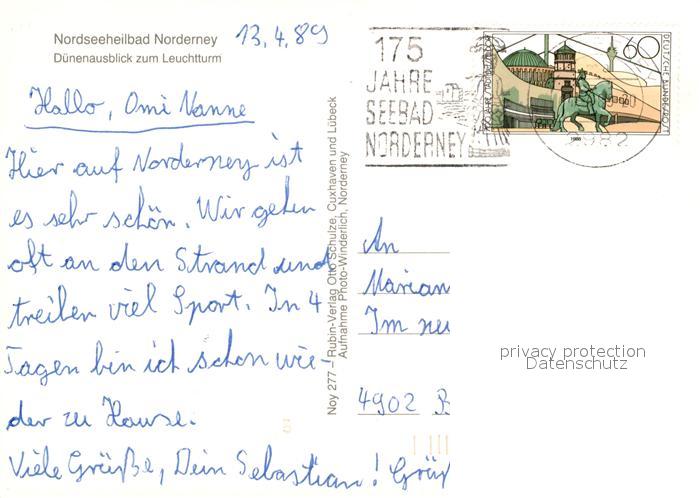 Nordseeheilbad Norderney
Dünenausblick zum Leuchtturm
13.4.89
Hallo, Omi Nanne
Hier auf Norderney ist
es sehr schön. Wir gehen
oft an den Strand und
treiben viel Sport. In 4
Tagen bin ich schon wie-
der zu Hause.
Viele Grüße, Dein Sebastian! Grüß
Noy 277 – Rubin-Verlag Otto Schulze, Cuxhaven und Lübeck
Aufnahme Photo-Winderlich, Norderney
175
JAHRE
SEEBAD
NORDERNEY
60
DEUTSCHE BUNDESPOST
1988
2982
An
Marian
Im neu
4902 B
privacy protection
Datenschutz